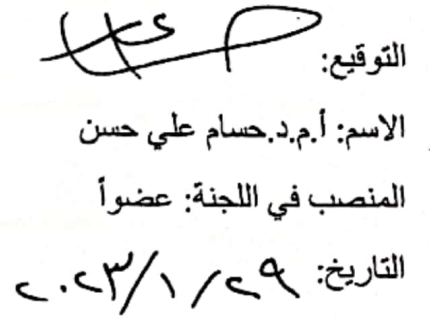 التوقيع:
الاسم: أ.م.د.حسام علي حسن
المنصب في اللجنة: عضواً
التاريخ: ٢٠٢٣/١/٢٩